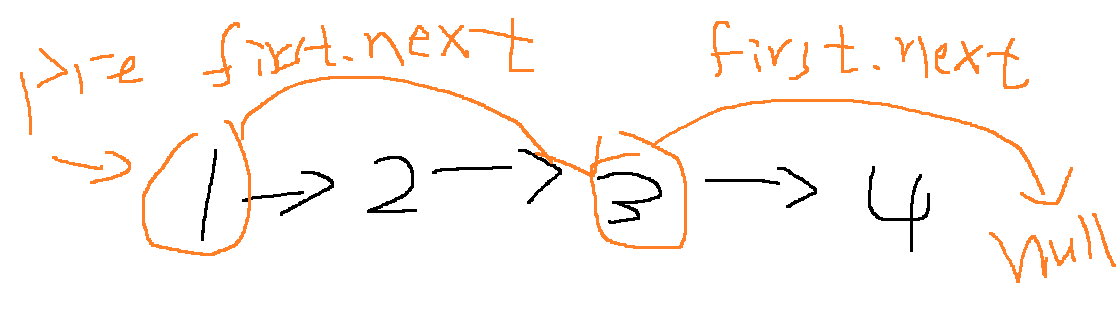 pre first.next first.next
1 → 2 → 3 → 4
null